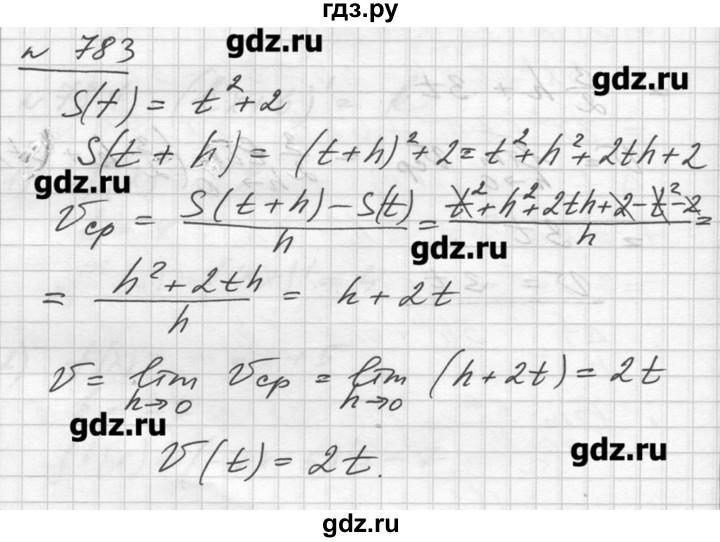 гдз.ру
№ 783
gdz.ru
gdz.ru
S(t) = t² + 2
S(t + h) = (t + h)² + 2 = t² + h² + 2th + 2
gdz.ru
Vср = (S(t + h) − S(t))/h = (t² + h² + 2th + 2 − t² − 2)/h =
gdz.ru
= (h² + 2th)/h = h + 2t
V = lim h→0 Vср = lim h→0 (h + 2t) = 2t
gdz.ru
V(t) = 2t.
gdz.ru
gdz.ru